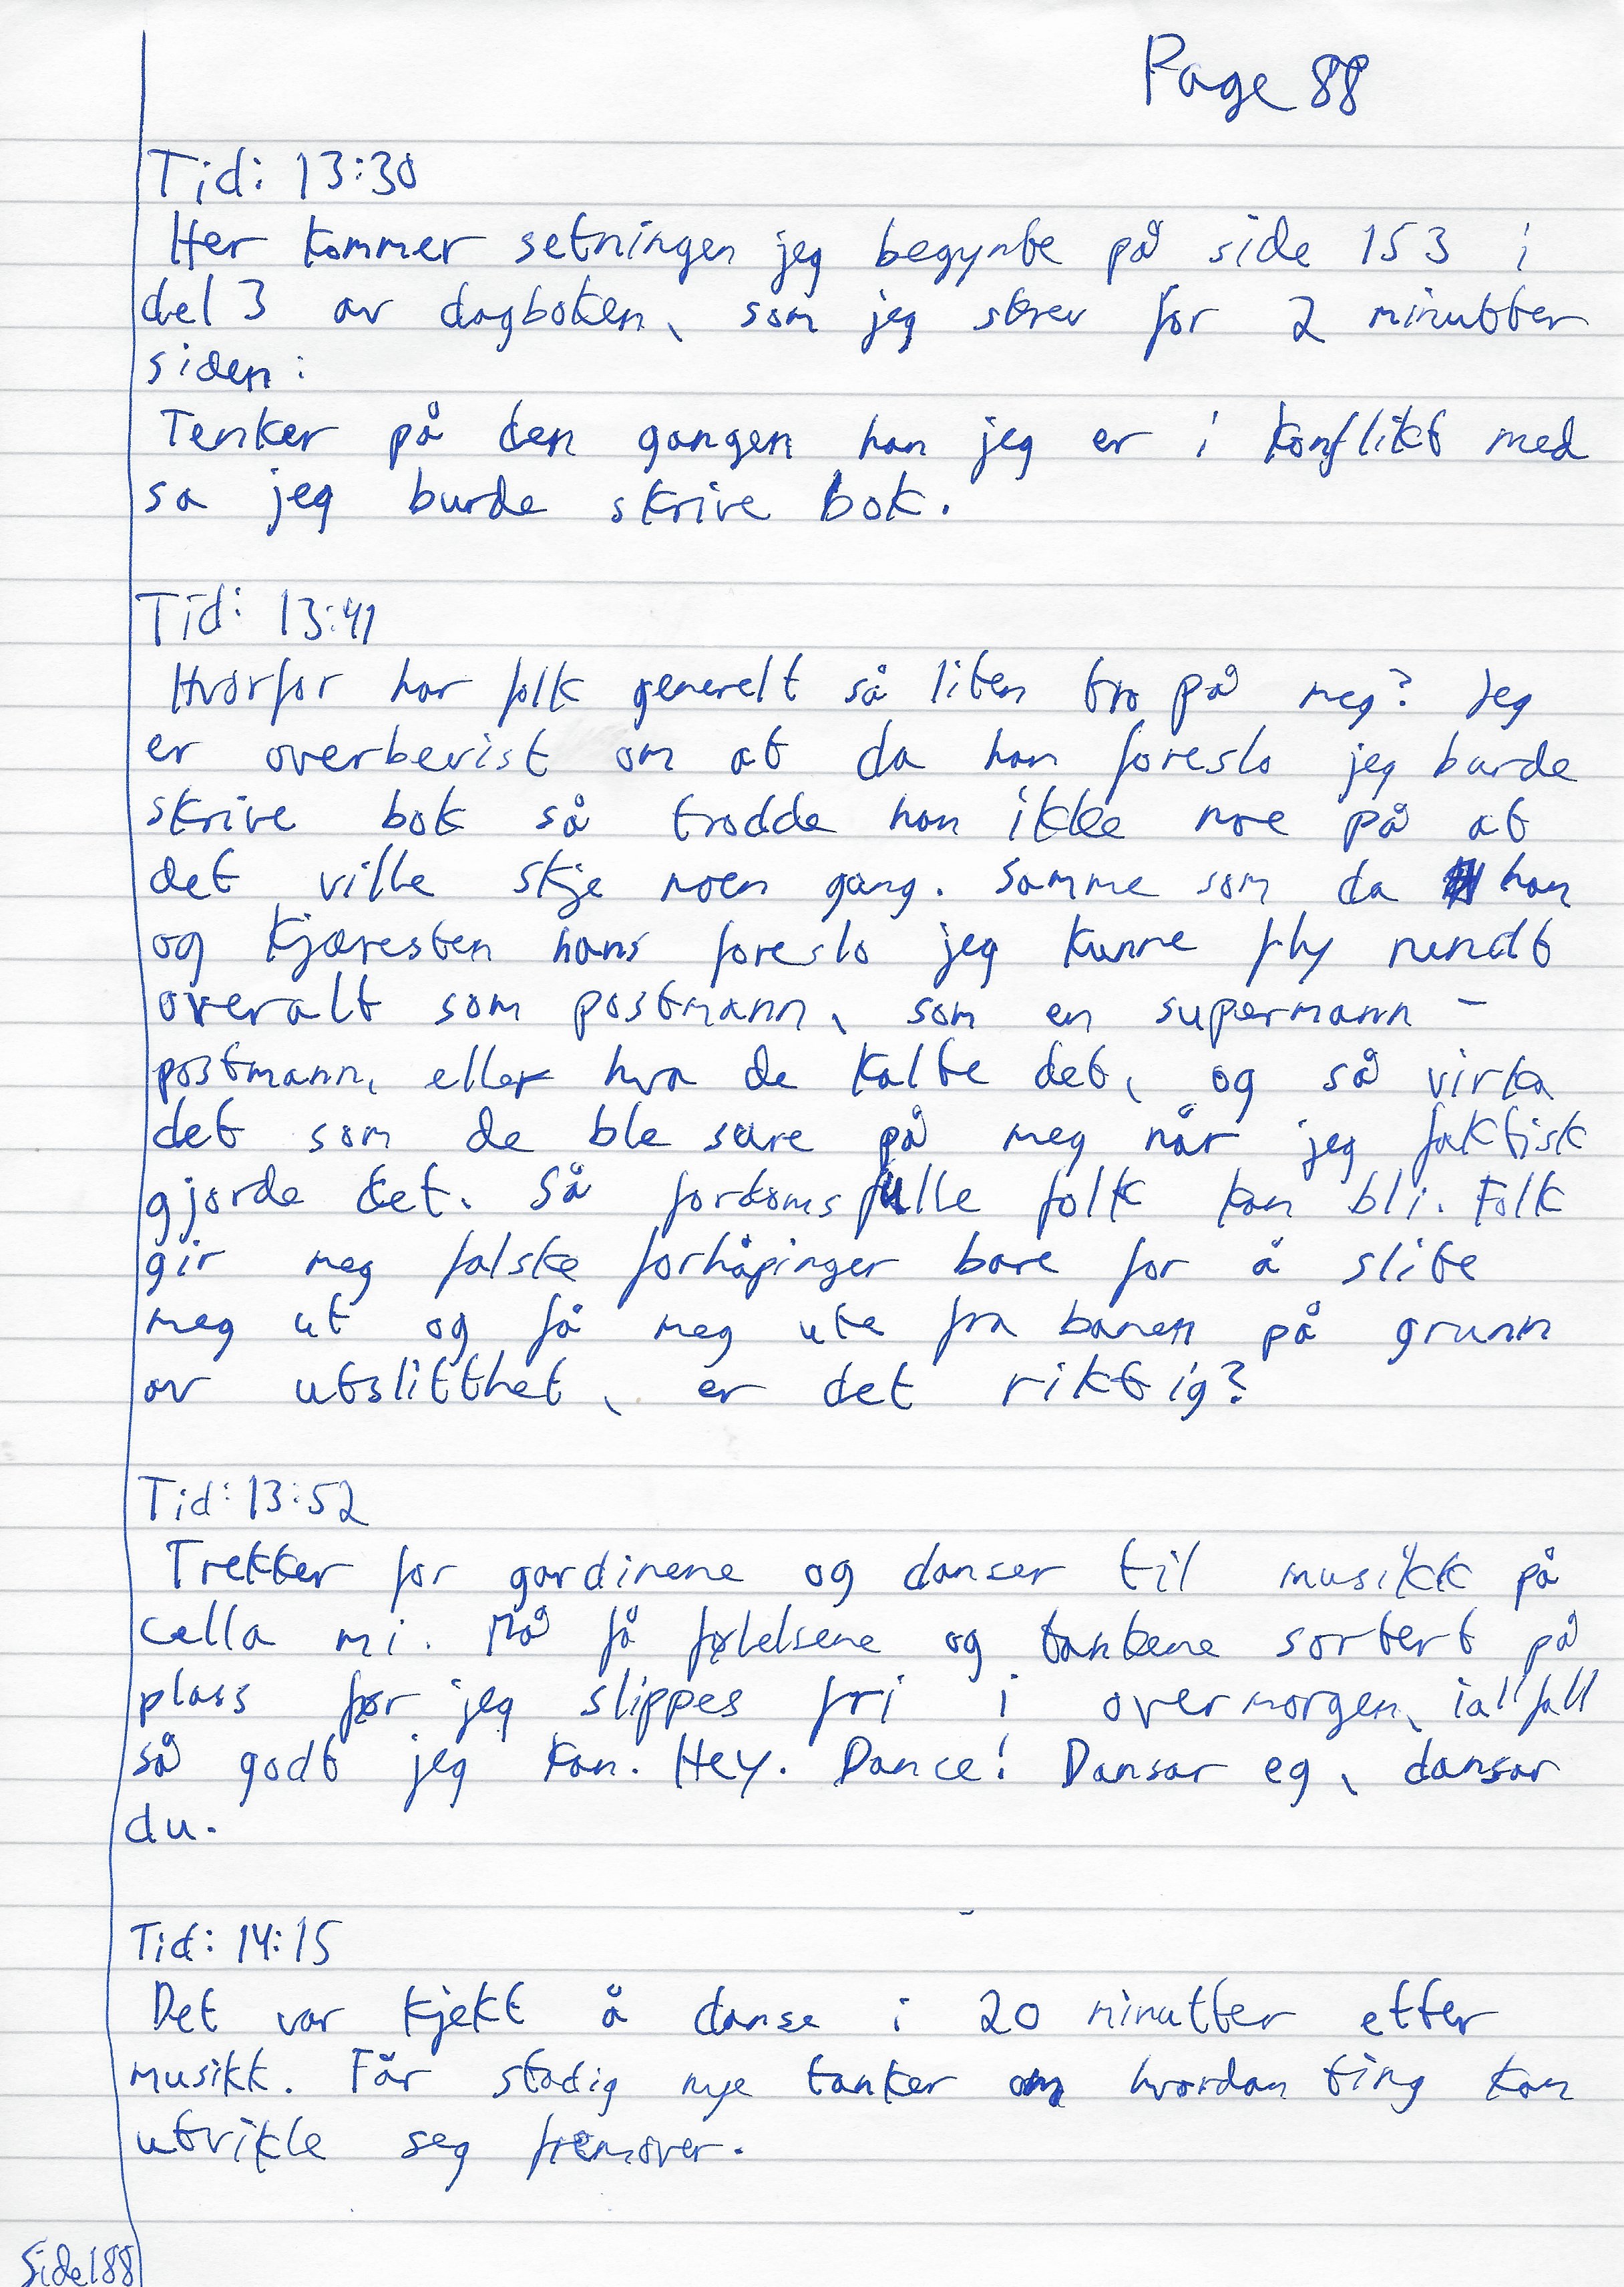 Page 88
Tid: 13:30
Her kommer setningen jeg begynte på side 153 i
del 3 av dagboken, som jeg skrev for 2 minutter
siden:
Tenker på den gangen han jeg er i konflikt med
sa jeg burde skrive bok.
Tid: 13:41
Hvorfor har folk generelt så liten tro på meg? Jeg
er overbevist om at da han foreslo jeg burde
skrive bok så trodde han ikke noe på at
det ville skje noen gang. Samme som da han
og kjæresten hans foreslo jeg kunne fly rundt
overalt som postmann, som en supermann-
postmann, eller hva de kalte det, og så virka
det som de ble sure på meg når jeg faktisk
gjorde det. Så fordomsfulle folk kan bli. Folk
gir meg falske forhåpinger bare for å slite
meg ut og få meg ute fra banen på grunn
av utslitthet, er det riktig?
Tid: 13:52
Trekker for gardinene og danser til musikk på
cella mi. Må få følelsene og tankene sortert på
plass før jeg slippes fri i overmorgen, iallfall
så godt jeg kan. Hey. Dance! Dansar eg, dansar
du.
Tid: 14:15
Det var kjekt å danse i 20 minutter etter
musikk. Får stadig nye tanker om hvordan ting kan
utvikle seg fremover.
Side 188